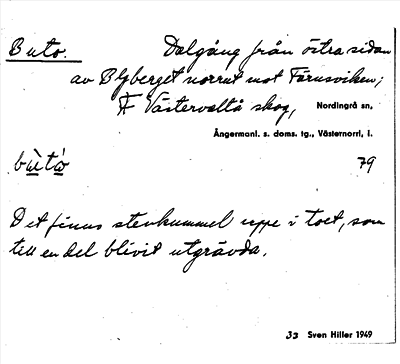 Buto. Dalgång från östra sidan
av Byberget norrut mot Färusviken;
F Västervalta skog, Nordingrå sn,
Ångermanl. s. doms. tg., Västernorrl. l.
bùtò 79
Det finns stenkummel uppe i toet, som
till en del blivit utgrävda.
33 Sven Hiller 1949